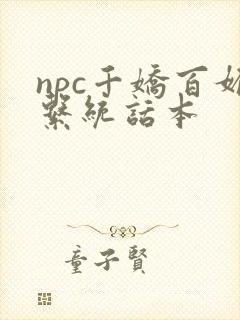 npc千嬌百媚
繫統話本
童子賢